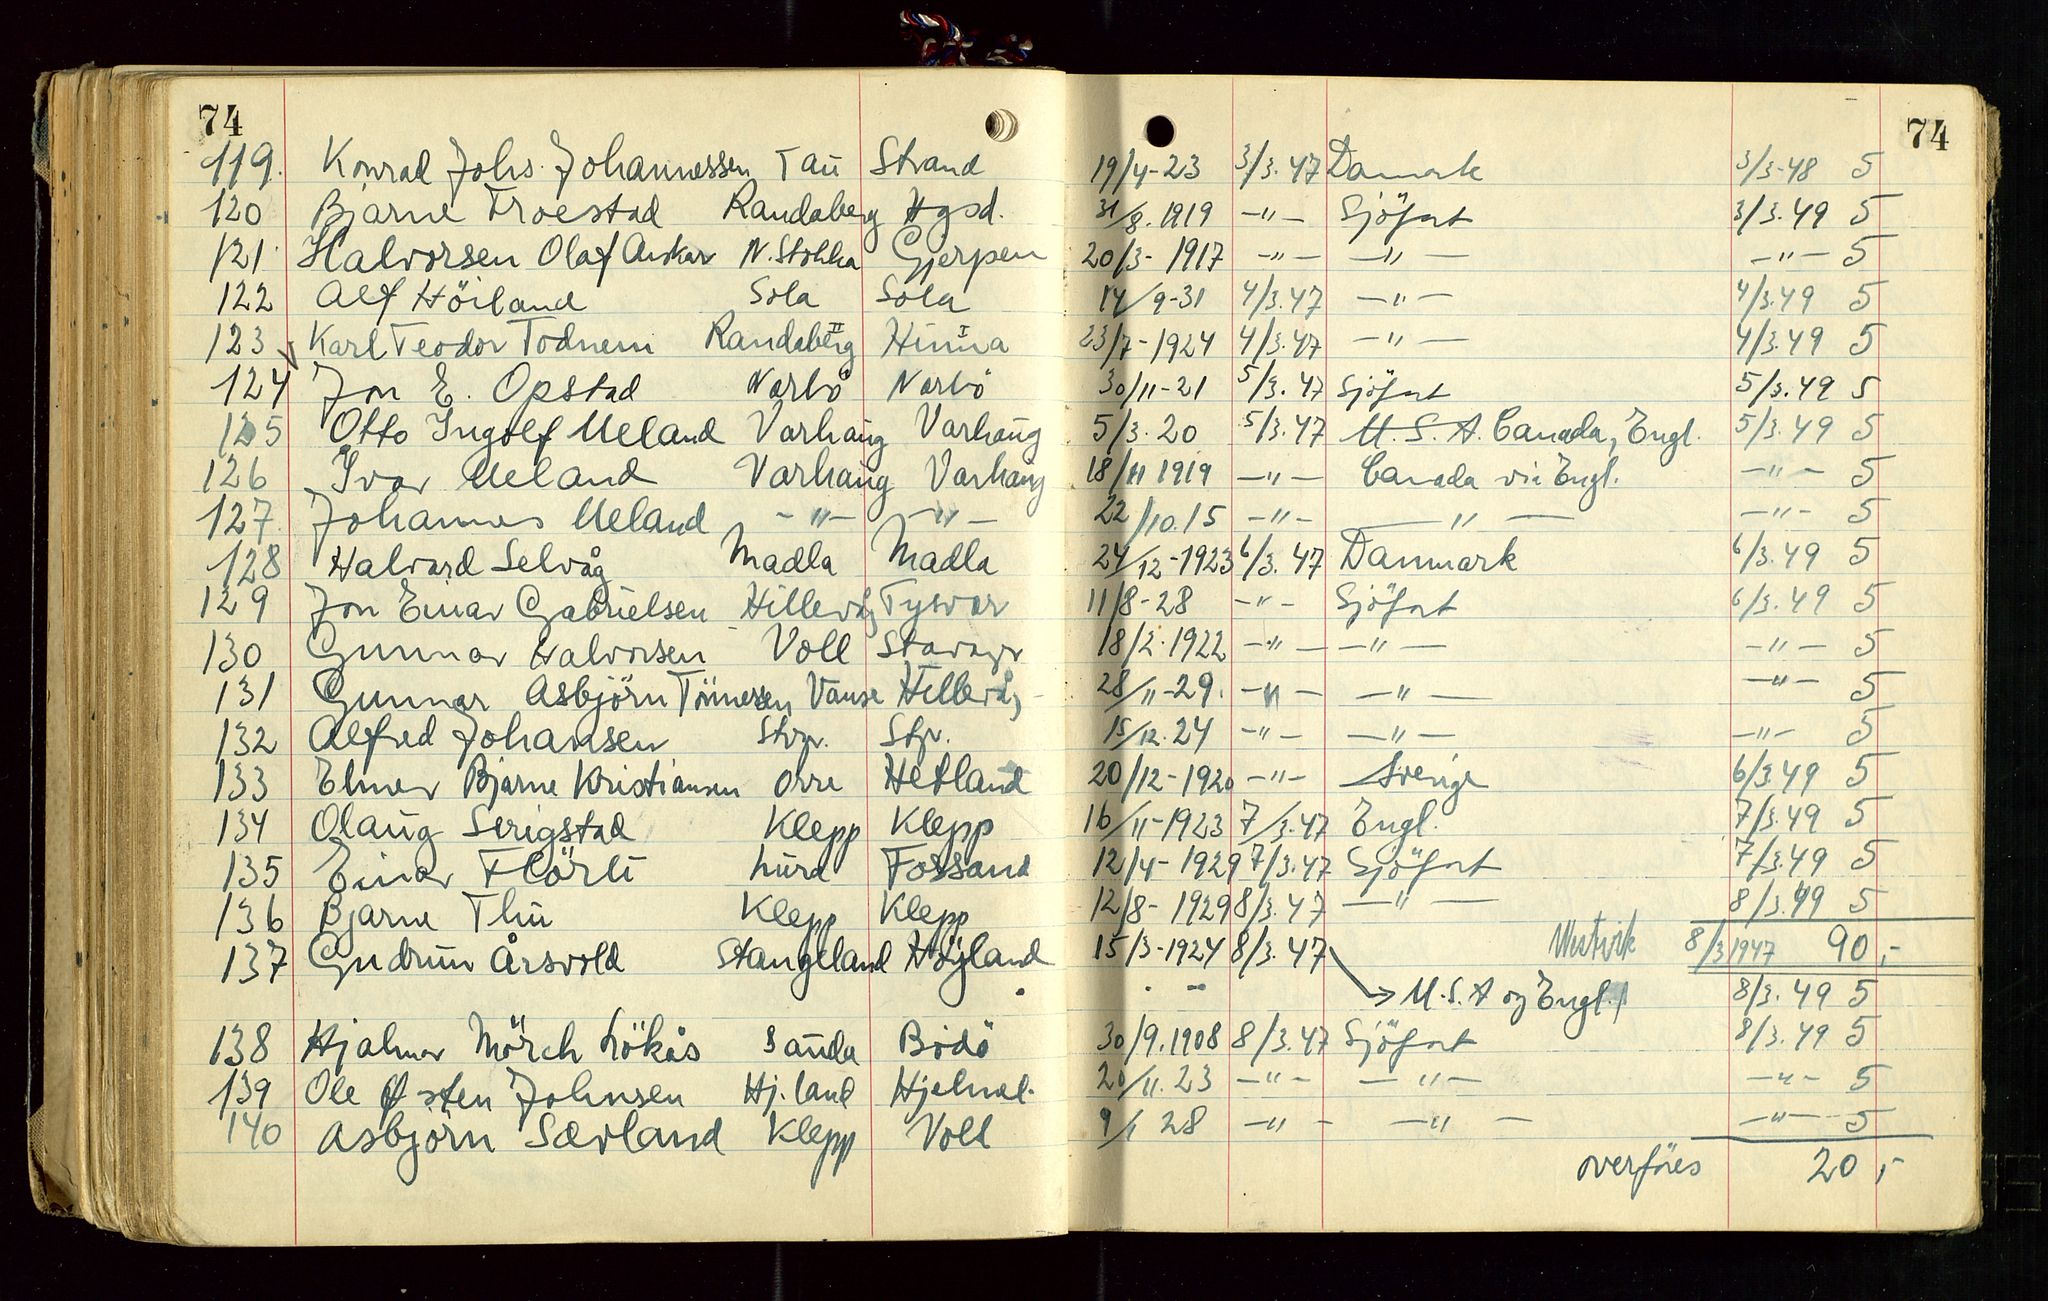 74 74
119. Konrad Johs. Johannessen Tau Strand 19/4-23 3/3.47 Danmark 3/3-48 5
120 Bjarne Troestad Randaberg Hgsd. 31/8.1919 -"- Sjöfart 3/3.49 5
121 Halvorsen Olaf Anskar N. Stokka Gjerpen 20/3-1917 -"- -"- -"- 5
122 Alf Höiland Sola Sola 14/9-31 4/3.47 -"- 4/3.49 5
123 Karl Teodor Todnem Randaberg II Hinna I 23/7-1924 4/3.47 -"- 4/3.49 5
124 Jon E. Opstad Narbö Narbö 30/11-21 5/3.47 Sjöfart 5/3.49 5
125 Otto Ingolf Ueland Varhaug Varhaug 5/3.20 5/3.47 U.S.A. Canada, Engl. 5/3.49 5
126 Ivar Ueland Varhaug Varhaug 18/11 1919 -"- Canada via Engl. -"- 5
127 Johannes Ueland -"- -"- 22/10.15 -"- -"- -"- 5
128 Halvard Selvåg Madla Madla 24/12-1923 6/3.47 Danmark 6/3.49 5
129 Jon Einar Gabrielsen Hillevåg Tysvær 11/8-28 -"- Sjöfart 6/3.49 5
130 Gunnar Halvorsen Voll Stavangr 18/2.1922 -"- -"- -"- 5
131 Gunnar Asbjörn Tönnessen Vanse Hillevåg 28/11-29. -"- -"- -"- 5
132 Alfred Johansen Stvgr. Stgr. 15/12.24 -"- -"- -"- 5
133 Elmer Bjarne Kristiansen Orre Hetland 20/12-1920 -"- Sverige 6/3.49 5
134 Olaug Serigstad Klepp Klepp 16/11-1923 7/3.47 Engl. 7/3.49 5
135 Einar Flörli Lura Fossand 12/4-1929 7/3.47 Sjöfart 7/3.49 5
136 Bjarne Thu Klepp Klepp 12/8-1929 8/3.47 -"- 8/3.49 5
137 Gudrun Årsvold Stangeland Höyland 15/3-1924 8/3.47 8/3 1947 90,-
U.S.A og Engl. 8/3.49 5
138 Hjalmar Mörch Lökås Sauda Bodö 30/9.1908 8/3.47 Sjöfart 8/3.49 5
139 Ole Østen Johnsen Hj.land Hjelmel. 20/11.23 -"- -"- -"- 5
140 Asbjörn Særland Klepp Voll 9/1 28 -"- -"- -"- 5
overföres 20,-